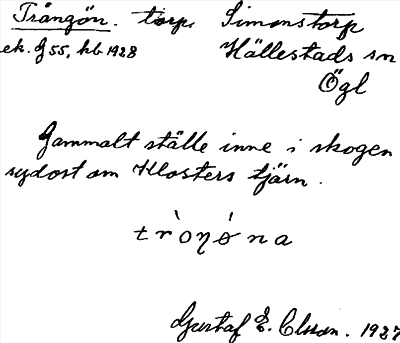 Trångön. torp. Simonstorp
ek. G 55, hb. 1928 Hällestads sn
Ögl
Gammalt ställe inne i skogen
sydost om Klosters tjärn.
Gustaf E. Olsson. 1927